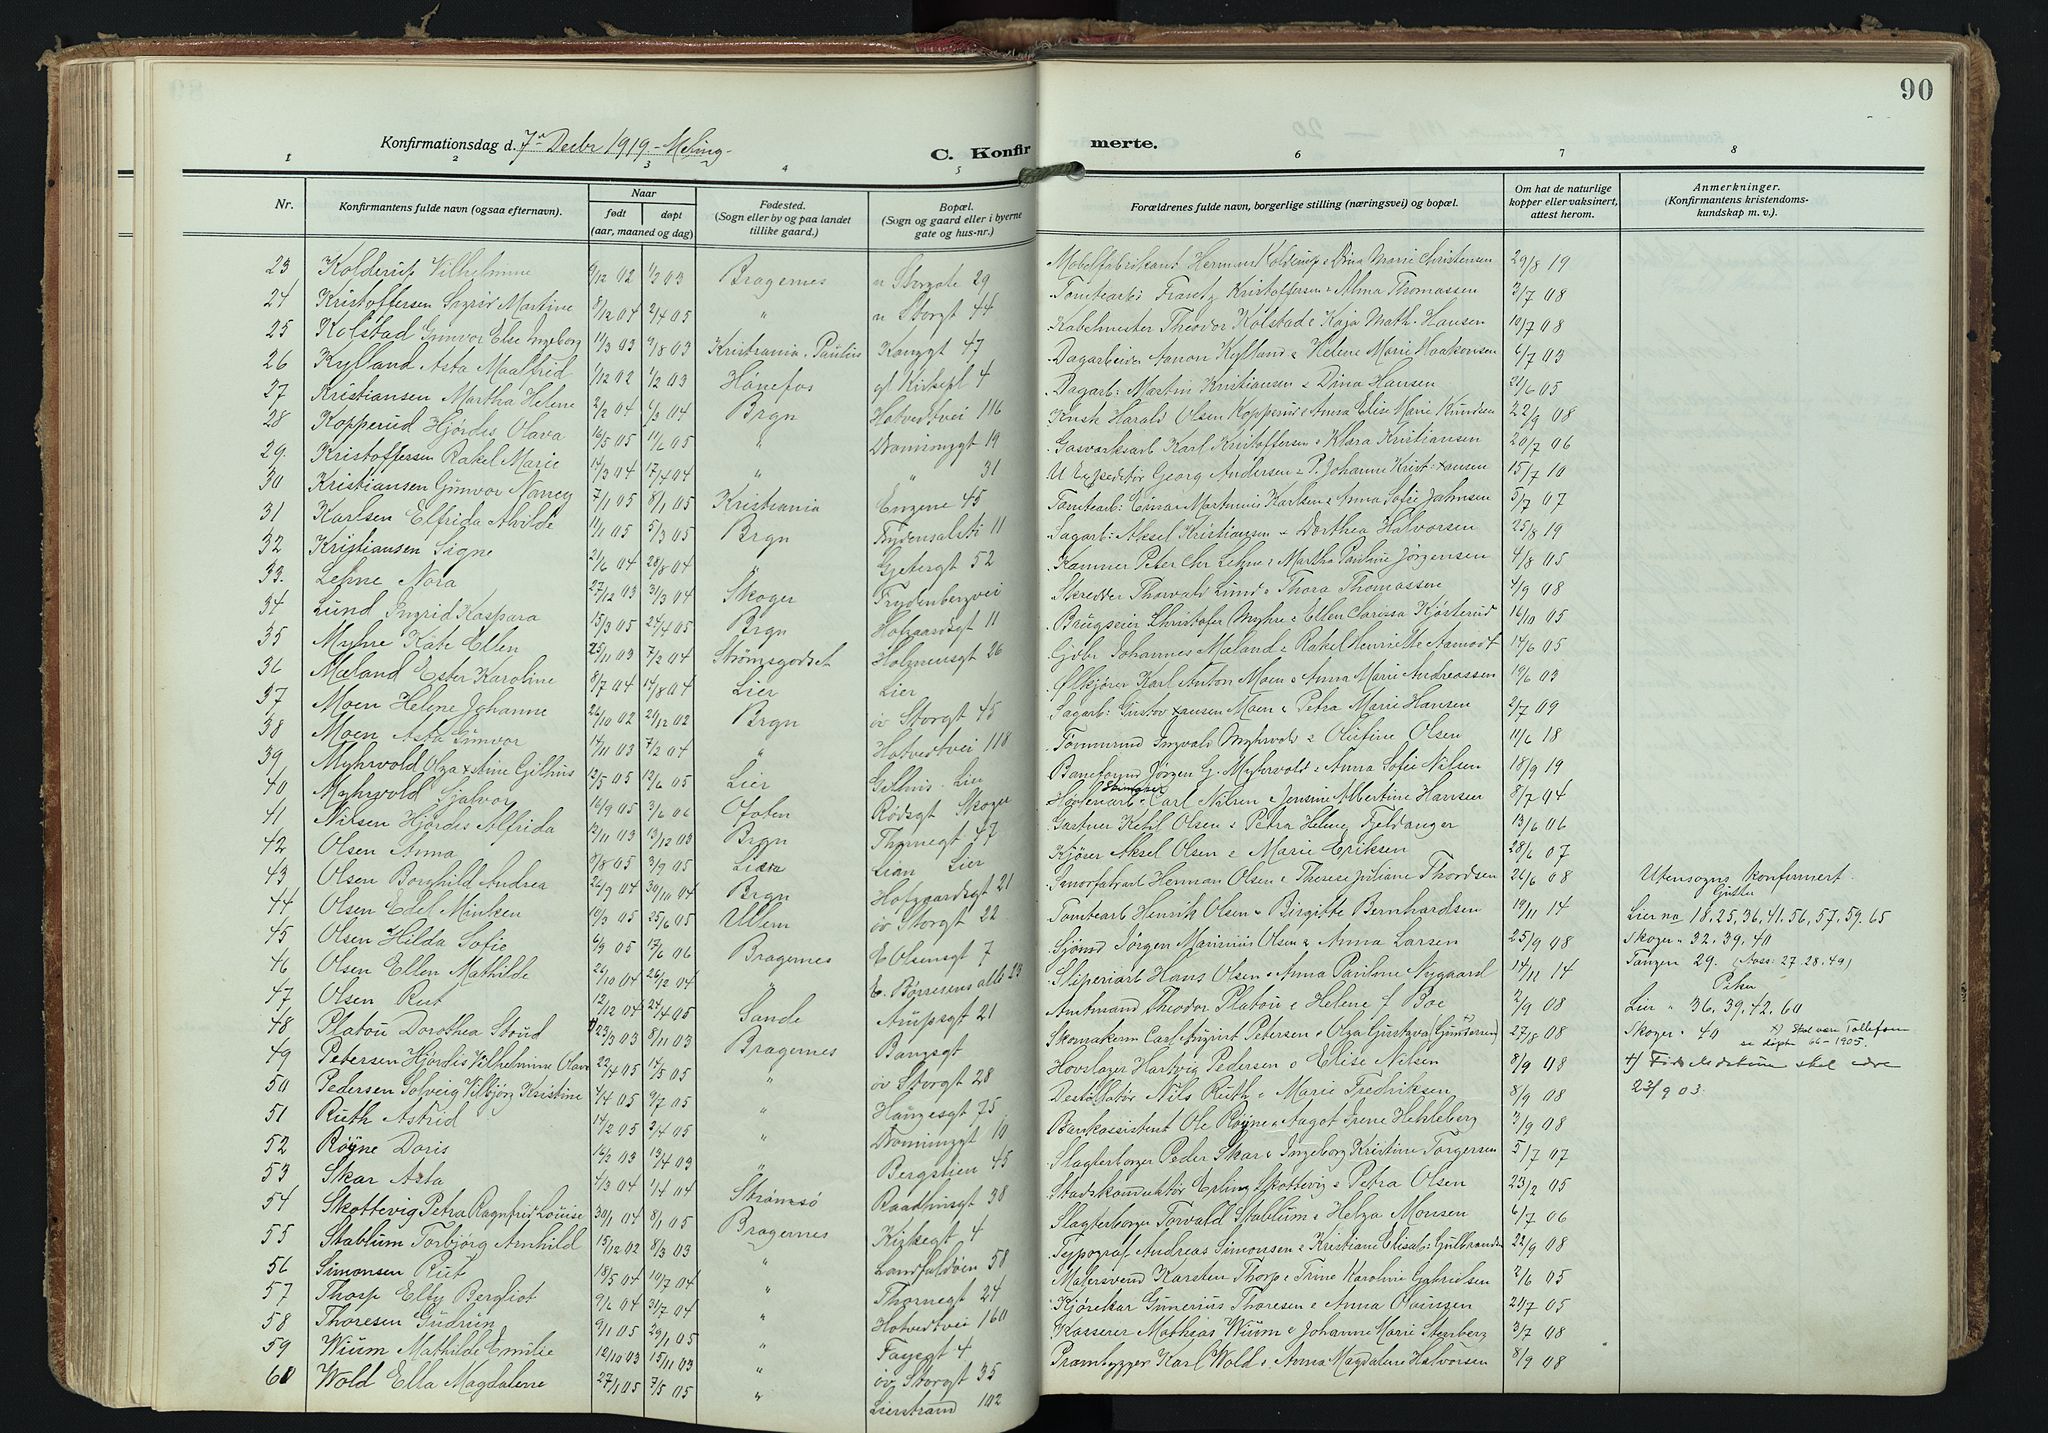 90
Konfirmationsdag d. 7de Decbr 1919 - Meling -
C. Konfirmerte.
1 2 3 4 5 6 7 8
Nr.
Konfirmantens fulde navn (ogsaa efternavn).
Naar
født døpt
(aar, maaned og dag)
Fødested.
(Sogn eller by og paa landet
tillike gaard.)
Bopæl.
(Sogn og gaard eller i byerne
gate og hus-nr.)
Forældrenes fulde navn, borgerlige stilling (næringsvei) og bopæl.
Om hat de naturlige
kopper eller vaksinert,
attest herom.
Anmerkninger.
(Konfirmantens kristendoms-
kundskap m. v.).
23 Kolderup Vilhelmine 02 1/2 03 Bragernes n Storgate 29 Møbelfabrikant Herman Kolderup & Dina Marie Christensen 29/8 19
24 Kristoffersen Sigrid Martine 8/12 04 2/4 05 " n Storgt 44 Tomtearb: Frantz Kristoffersen & Alma Thomassen 3/7 08
25 Kolstad Gunvor Else Ingeborg 11/3 03 9/8 03 Kristiania, Paulus Konggt 47 Kabelmester Theodor Kolstad & Kaja Math. Hansen 10/7 08
26 Kylland Asta Maalfrid 1/12 02 1/2 03 Hönefos gl Kirkepl 4 Dagarbeider Aanon Kylland & Helene Marie Haakonsen 6/7 03
27 Kristiansen Martha Helene 2/2 04 4/3 04 Brgn Hotvedtvei 116 Dagarb: Martin Kristiansen & Dina Hansen 21/6 05
28 Kopperud Hjördis Olava 16/5 05 11/6 05 " Dronninggt 19 Kusk Harald Olsen Kopperud & Anna Elise Marie Knudsen 22/9 08
29 Kristoffersen Rakel Marie 14/3 04 17/4 04 " " 31 Gasverksarb Karl Kristoffersen & Klara Kristiansen 20/7 06
30 Kristiansen Gunvor Nancy 7/1 05 8/1 05 Kristiania Engene 45 U Expeditör Georg Andersen & P. Johanne Kristiansen 15/7 10
31 Karlsen Elfrida Alvilde 11/1 05 5/3 05 Brgn Frydensalsti 11 Tomtearb: Einar Martinius Karlsen & Anna Sofie Jahnsen 5/7 07
32 Kristiansen Signe 21/6 04 28/8 04 " Gjetergt 52 Sagarb: Aksel Kristiansen & Dorthea Halvorsen 25/8 19
33. Lehne Nora 27/12 03 3/3 04 Skoger Frydenbergvei Peter Chr Lehne & Martha Pauline Jörgensen 4/8 05
34 Lund Ingrid Kaspara 15/3 05 24/4 05 Brgn Hofgaardsgt 11 Skredder Thorvald Lund & Thora Thomassen 4/9 08
35 Myhre Kate Ellen 25/11 03 7/2 04 Strömsgodset Holmensgt 26 Brugseier Christofer Myhre & Ellen Clarissa Kjösterud 16/10 05
36 Mæland Ester Karoline 8/7 04 14/8 04 Lier Lier Gdbr Johannes Mæland & Rakel Henriette Aamodt 14/6 05
37 Moen Helene Johanne 26/10 02 21/12 02 Brgn öv Storgt 45 Ølkjører Karl Anton Moen & Anna Marie Andreassen 19/6 03
38 Moen Asta Gunvor 14/11 03 7/2 04 " Hotvedtvei 118 Sagarb: Gustav Hansen Moen & Petra Marie Hansen 2/7 09
39 Myhrvold Olga Gjellhus 12/5 05 12/6 05 Lier Gelhus. Lier Ingvald Myhrvold & Olufine Olsen 11/6 18
40 Myhrvold Sjalvor 10/9 05 3/6 06 Ofoten Rødsgt Skoger Baneformd Jörgen G. Myhrvold & Anna Sofie Nilsen 18/9 19
41 Nilsen Hjördis Alfrida 12/11 03 13/12 03 Brgn Thornegt 47 Carl Nilsen & Jensine Albertine Hansen 8/7 04
42 Olsen Anna 9/8 05 3/9 05 Lian Lier Gartner Olsen & Petra Helene Fjeldanger 13/6 06
43 Olsen Borghild Andrea 26/9 04 30/10 04 Brgn Hofgaardsgt 21 Kjöser Aksel Olsen & Marie Eriksen 28/6 07
44 Olsen Edel Minken 10/3 05 25/6 05 Ullern öv Storgt 22 Herman Olsen & Therese Juliane Thordsen 26/6 08
45 Olsen Hilda Sofie 6/9 05 17/6 06 Bragernes E Olsensgt 7 Tomtearb Henrik Olsen & Birgitte Bernhardsen 19/11 14
46 Olsen Ellen Mathilde 26/10 04 26/12 04 " E. Börresens allé 23 Sjömd Jörgen Marinius Olsen & Anna Larsen 25/9 08
47 Olsen Rut 12/12 04 24/4 05 Sande Amtpsgt 21 Sliperiarb Hans Olsen & Anna Pauline Nygaard 14/11 14
48 Platou Dorothea Stoud 23/3 03 8/11 03 Bragernes Bangsgt Amtmand Theodor Platou & Helene f Boe 2/9 08
49 Petersen Hjördis Vilhelmine Olava 22/4 05 14/5 05 " öv Storgt 28 Skomakerm Carl August Petersen & Olga Gustava (Gundersen) 27/8 08
50 Pedersen Solveig Vilbjörg Kristine 4/4 05 9/7 05 " Haugesgt 75 Hovslager Hartvig Pedersen & Elise Nilsen 8/9 08
51 Ruth Astrid 14/2 05 2/4 05 " Dronninggt 10 Destillatör Nils Ruth & Marie Fredriksen 8/9 08
52 Röyne Doris 16/2 03 13/4 03 " Bergstien 45 Bankassistent Ole Röyne & Aagot Irene Hekleberg 3/9 08
53 Skar Asta 4/3 04 1/4 04 Strømsö Raadhusgt 38 Slagterborger Peder Skar & Ingeborg Kristine Torgersen 5/7 07
54 Skottevig Petra Ragnfrid Louise 30/1 04 8/1 05 Bragernes Kirkegt 4 Stadskonduktör Erling Skottevig & Petra Olsen 23/2 05
55 Stablum Torbjörg Arnhild 15/12 02 8/3 03 " Landfaldöen 58 Slagterborger Torvald Stablum & Helga Monsen 6/7 06
56 Simonsen Rut 18/5 04 10/7 04 " Thornegt 24 Typograf Andreas Simonsen & Kristiane Elisab: Gulbrandsen 22/9 08
57 Thorp Elly Bergliot 9/6 04 31/7 04 " Hotvedtvei 160 Malersvend Karsten Thorp & Trine Karoline Gabrielsen 2/6 05
58 Thoresen Gudrun 9/1 05 29/1 05 " Fayegt 4 Kjörekar Gunerius Thoresen & Anna 21/7 05
59 Wium Mathilde Emilie 12/10 03 15/11 03 " öv Storgt 35 Kasserer Mathias Wium & Johanne Marie Stenberg 3/7 08
60 Wold Ella Magdalene 27/1 05 7/5 05 " Lierstrand 102 Prambygger Karl Wold & Anna Magdalene Halvorsen 8/9 08
Utensogns konfirmert.
Gutter
Lier no 18, 25, 36, 41, 56, 57, 59, 65
Skoger " 32, 39, 40
Tangen 29. (Nøss: 27. 28. 49)
Piker
Lier " 36, 39, 42, 60
Skoger " 40 x) Skal være Tollefsen
se döpte 66-1905.
+) Födselsdatum skal være
23/9 03.